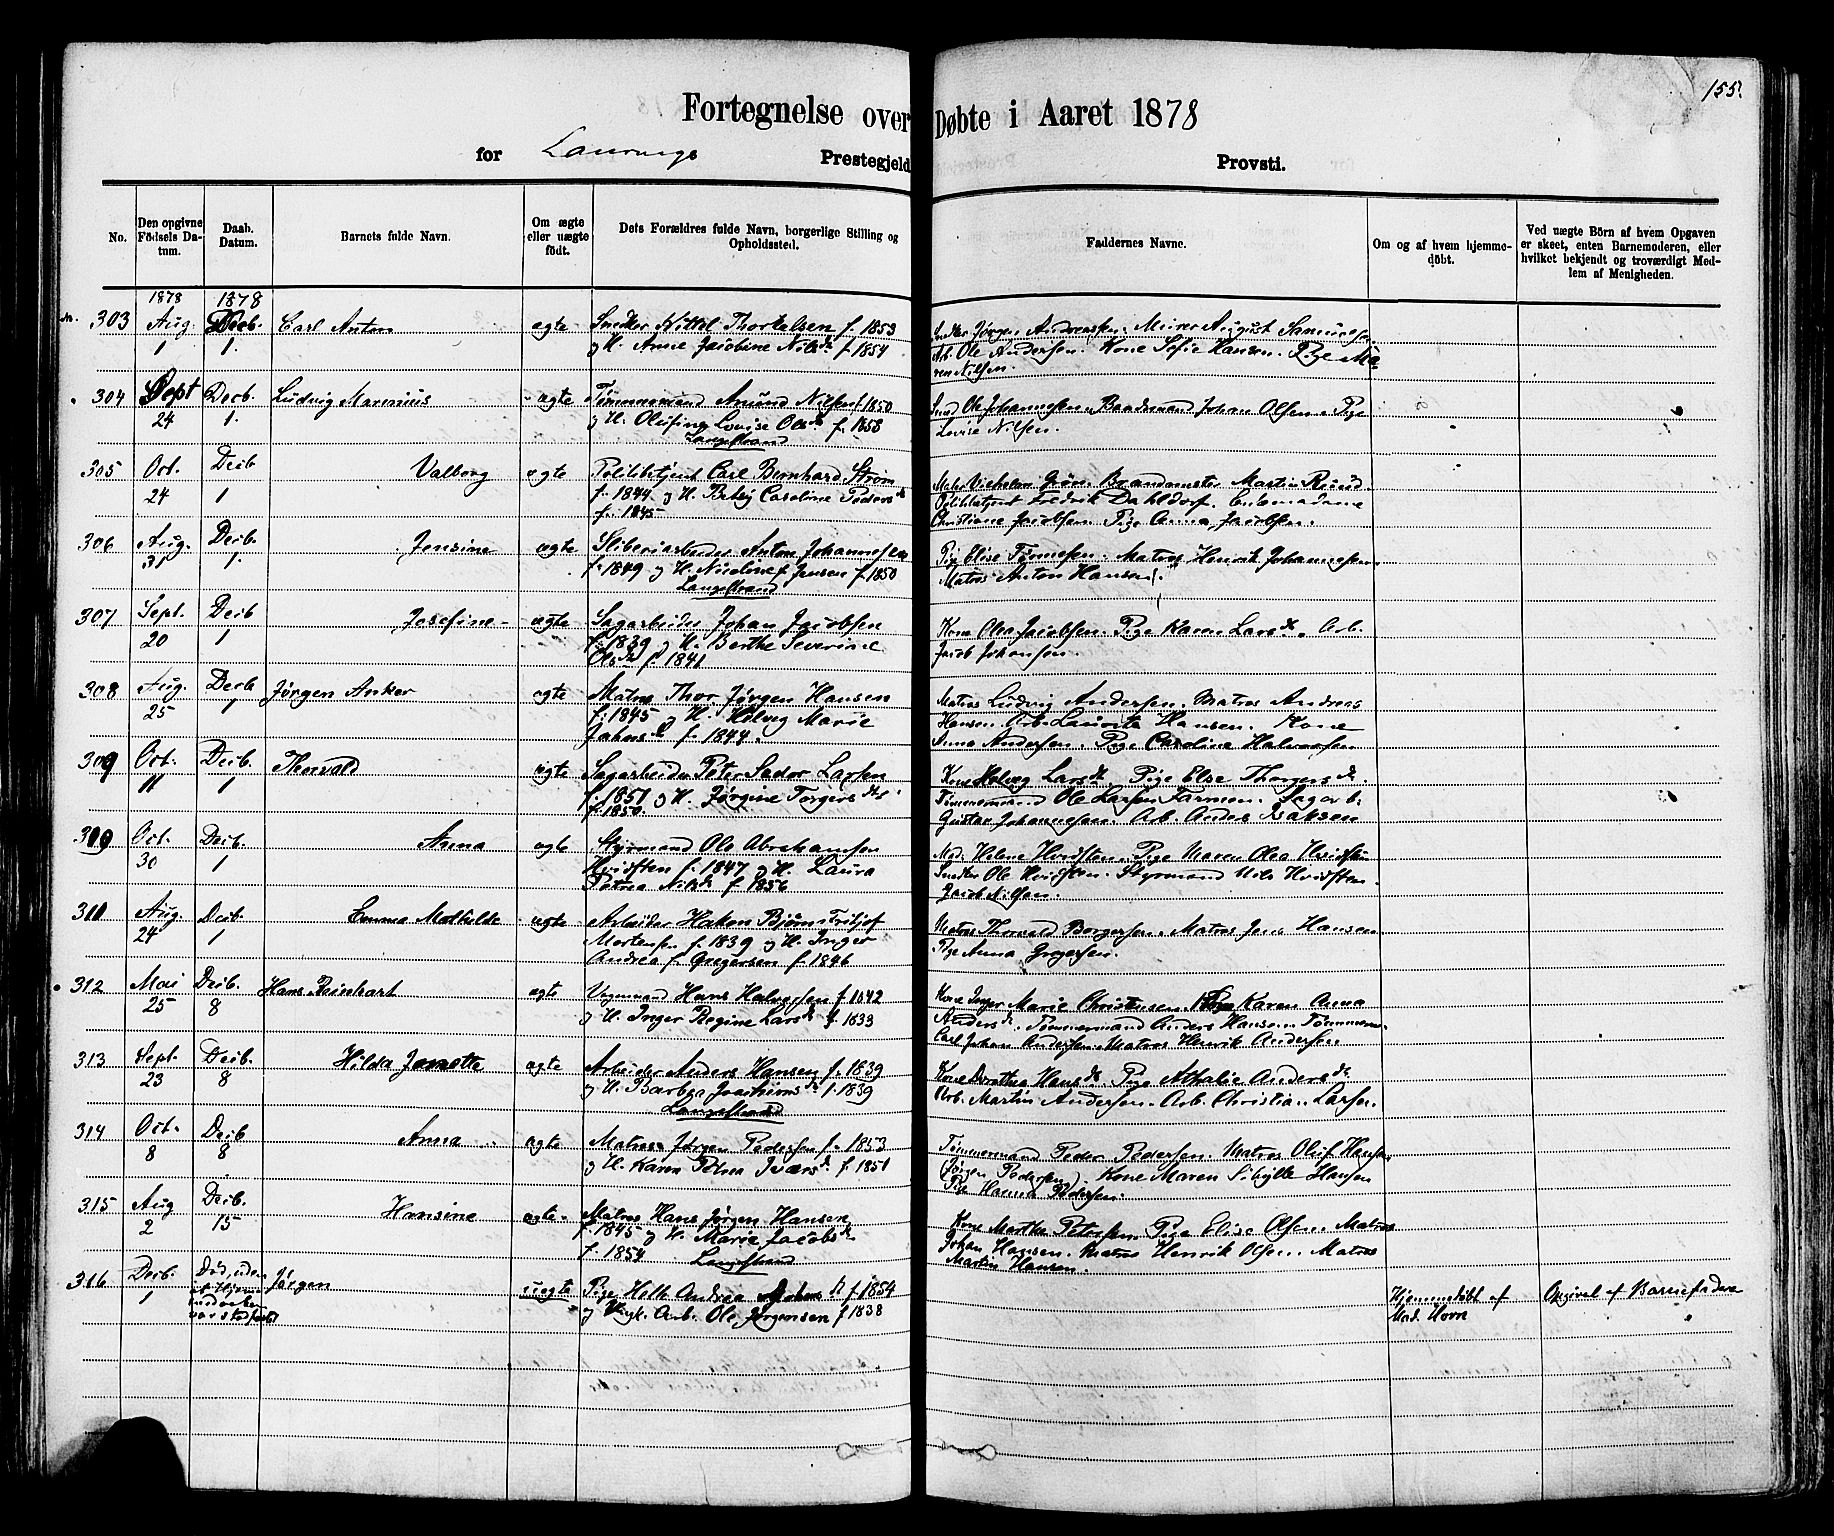 155.
Fortegnelse over Døbte i Aaret 1878
for Laurvigs Prestegjeld Provsti.
No. | Den opgivne Födsels Datum. | Daab. Datum. | Barnets fulde Navn. | Om ægte eller uægte födt. | Dets Forældres fulde Navn, borgerlige Stilling og Opholdssted. | Faddernes Navne. | Om og af hvem hjemmedöbt. | Ved uægte Börn af hvem Opgaven er skeet, enten Barnemoderen, eller hvilket bekjendt og troværdigt Medlem af Menigheden.
1878 1878
303 Aug. 1 Decb. 1. Carl Anton ægte Snedker Kittel Thorkelsen f. 1853
og H. Anne Jacobine Nilsd. f. 1854
Snedker Jørgen Andreassen. Murer August
Arb. Ole Andersen. Kone Sofie Hansen. Pige Ma-
ren Nilsen.
304 Sept 24 Decb. 1. Ludvig Marinius ægte Tømmermand Amund Nilsen f. 1850
og H. Olufine Lovise Olsd. f. 1858
Langestrand
Ole Johannesen. Baadsmand Johan Olsen. Pige
Lovise Nilsen.
305 Oct. 24 Decb 1 Valborg ægte Politibetjent Carl Bernhard Strøm
f. 1844 og H. Caroline Pedersd.
f. 1845
Grøn. Brandmester Martin Ruud
Politibetjent Fredrik Dahldorf. Enkemadame
Christiane Jacobsen. Pige Anna Jacobsen.
306 Aug. 31 Decb. 1. Jensine ægte Sliberiarbeider Anton Johannesen
f. 1849 og H. Nicoline f. Jensen f. 1850
Langestrand
Pige Elise Tønnesen. Matros Henrik Johannesen.
Matros Anton Hansen.
307 Sept. 20 Decb 1 Josefine ægte Sagarbeider Johan Jacobsen
f. 1839 og H. Berthe Severine
Olsd. f. 1841
Kone Olea Jacobsen. Pige Karen Larsd. Arb.
Jacob Johansen.
308 Aug. 25 Decb 1 Jørgen Anker ægte Matros Thor Jørgen Hansen
f. 1845 og H. Hilveg Marie
Johnsd. f. 1844.
Matros Ludvig Andersen. Matros Andreas
Hansen. Arb. Laurits Hansen. Kone
Anna Andersen. Pige Caroline Halvorsen
309 Oct. 11 Decb. 1 Thorvald ægte Sagarbeider Peter Sador Larsen
f. 1851 og H. Jørgine Torgersd.
f. 1850.
Kone Helveg Larsd. Pige Else Thorgersd.
Tømmermand Ole Larsen Farmen. Sagarb.
Gustav Johannesen. Arb. Anders Isaksen
310 Oct. 30 Decb. 1 Anna ægte Styrmand Ole Abrahamsen
Hvidsten f. 1847 og H. Laura
Petrea Nilsd. f. 1856
Mad. Helene Hvidsten. Pige Maren Olea Hvidsten
Snedker Ole Hvidsten. Styrmand Nils Hvidsten.
Jacob Nilsen.
311 Aug. 24 Decb. 1 Emma Mathilde ægte Arbeider Hakon Bjørn Fritjof
Mortensen f. 1839 og H. Inger
Andrea f. Gregersen f. 1846
Matros Thorvald Borgersen. Matros Jens Hansen
Pige Anna Gregersen.
312 Mai 25 Decb. 8 Hans Reinhart ægte Vognmand Hans Halvorsen f. 1842
og H. Inger Regine Larsd. f. 1833
Kone Inger Marie Christensen. Pige Karen Anna
Andersd. Tømmermand Anders Hansen. Tømmerm.
Carl Johan Andersen. Matros Henrik Andersen
313 Sept. 23 Decb. 8 Hilda Janette ægte Arbeider Anders Hansen f. 1839
og H. Barbra Joachimsd. f. 1839
Langestrand
Kone Dorothea Hansd. Pige Athalie Andersd.
Arb. Martin Andersen. Arb. Christian Larsen.
314 Oct. 8 Decb 8 Anna ægte Matros Jørgen Pedersen f. 1853
og H. Karen Petrea Iversd. f. 1851
Tømmermand Peder Pedersen. Matros Oluf Hansen
(Jørgen Pedersen). Kone Maren Sibylle Hansen
Pige Hanna Pedersen.
315 Aug 2 Decb. 15 Hansine ægte Matros Hans Jørgen Hansen
f. 1845 og H. Marie Jacobsd.
f. 1854 Langestrand
Kone Marthe Petersen. Pige Elise Olsen. Matros
Johan Hansen. Matros Henrik Olsen. Matros
Martin Hansen.
316 Decb. 1 Død, uden at Hjemmedaaben var stadfæstet Jørgen uægte Pige Helle Andrea f. 1854
og Ungk. Arb. Ole Jørgensen f. 1838
Hjemmedøbt af
Mad. Horn
Opgivet af Barnefaderen